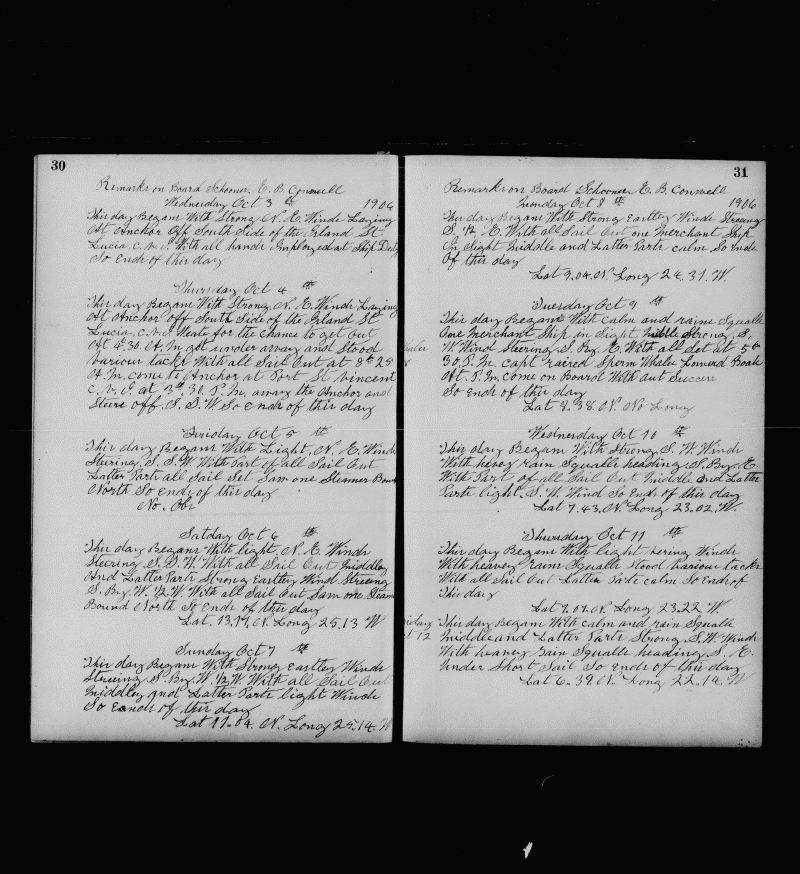 30
Remarks on Board Schooner. E. B. Conwell
Wednesday Oct 3 th 1906
This day Began With Strong N. E. Winds Laying
At Anchor Off South Side of the Island St
Lucia. C. V. I. With all hands Employed at Ship Duty
So Ends of this day
Thursday Oct 4 th
This day Began With Strong. N. E. Winds Laying
At Anchor off South Side of the Island St
Lucia. C. V. I. Waite for the Chance to get Out
At 4.30. A. M. got under away and Stood
Various tacks With all Sail Out at 8 th 25
A. M. come to Anchor at Port St Vincent
C. V. I. at 3 th. 30. P. M. away the Anchor and
Steire off S. S. W So Ends of this day
Friday Oct 5 th
This day Began With Light. N. E. Winds
Steering. S. S. W. With Part of all Sail Out
Latter Part all Sail Set Saw one Steamer Bound
North So Ends of this day
No. Obs
Satday Oct 6 th
This day Began With light. N. E. Winds
Steering. S. S. W. With all Sail Out Middley
And Latter Parts Strong Eastley Wind Streeing
S. By. W. 1/2 W. With all Sail Out Saw one Steam
Bound North So Ends of this day
Lat. 13.17. N. Long 25.13 W
Sunday Oct 7 th
This day Began With Strong Eastley Winds
Steeing. S. By. W. 1/2 W With all Sail Out
Middley and Latter Parts light Winds
So Eands of this day
Lat 11.04. N. Long 25.14. W
31
Remarks on Board Schooner E. B. Conwell
Monday Oct 8 th 1906
This day Began With Strong Eastley Winds Streeing
S. 1/2 E. With all Sail Out one Merchant Ship
In Sight Middle and Latter Parts calm So Ends
Of this day
Lat 9.04. N. Long 24.31. W.
Tuesday Oct 9 th
This day Began With Calm and raine Squalls
One Merchant Ship in Sight Middle Strong. S.
W. Wind Steering. S. By. E. With all Set at 5 th
30. P. M. capt raised Sperm Whales Lowerd Boats
At. P. M. Come on Board With aut Success
So Ends of this day
Lat 8.38. N. No Long
Wednesday Oct 10 th
This day Began With Strong. S. W. Winds
With hevey rain Squalls heading. S. By. E.
With Part of all Sail Out Middle and Latter
Parts light. S. W. Wind So Ends of this day
Lat 7.43. N. Long 23.02. W.
Thursday Oct 11 th
This day Began With light Winds
With heavey rain Squalls Stood Various tacks
With all Sail Out Latter Part calm So Ends of
This day
Lat 7.07. N Long 23.22 W
Friday
Oct 12
This day Began With calm and rain Squalls
Middle and Latter Parts Strong. S. W. Winds
With heavey Rain Squalls heading. S. E.
Under Short Sail So Ends of this day
Lat 6.39. N. Long 22.14. W